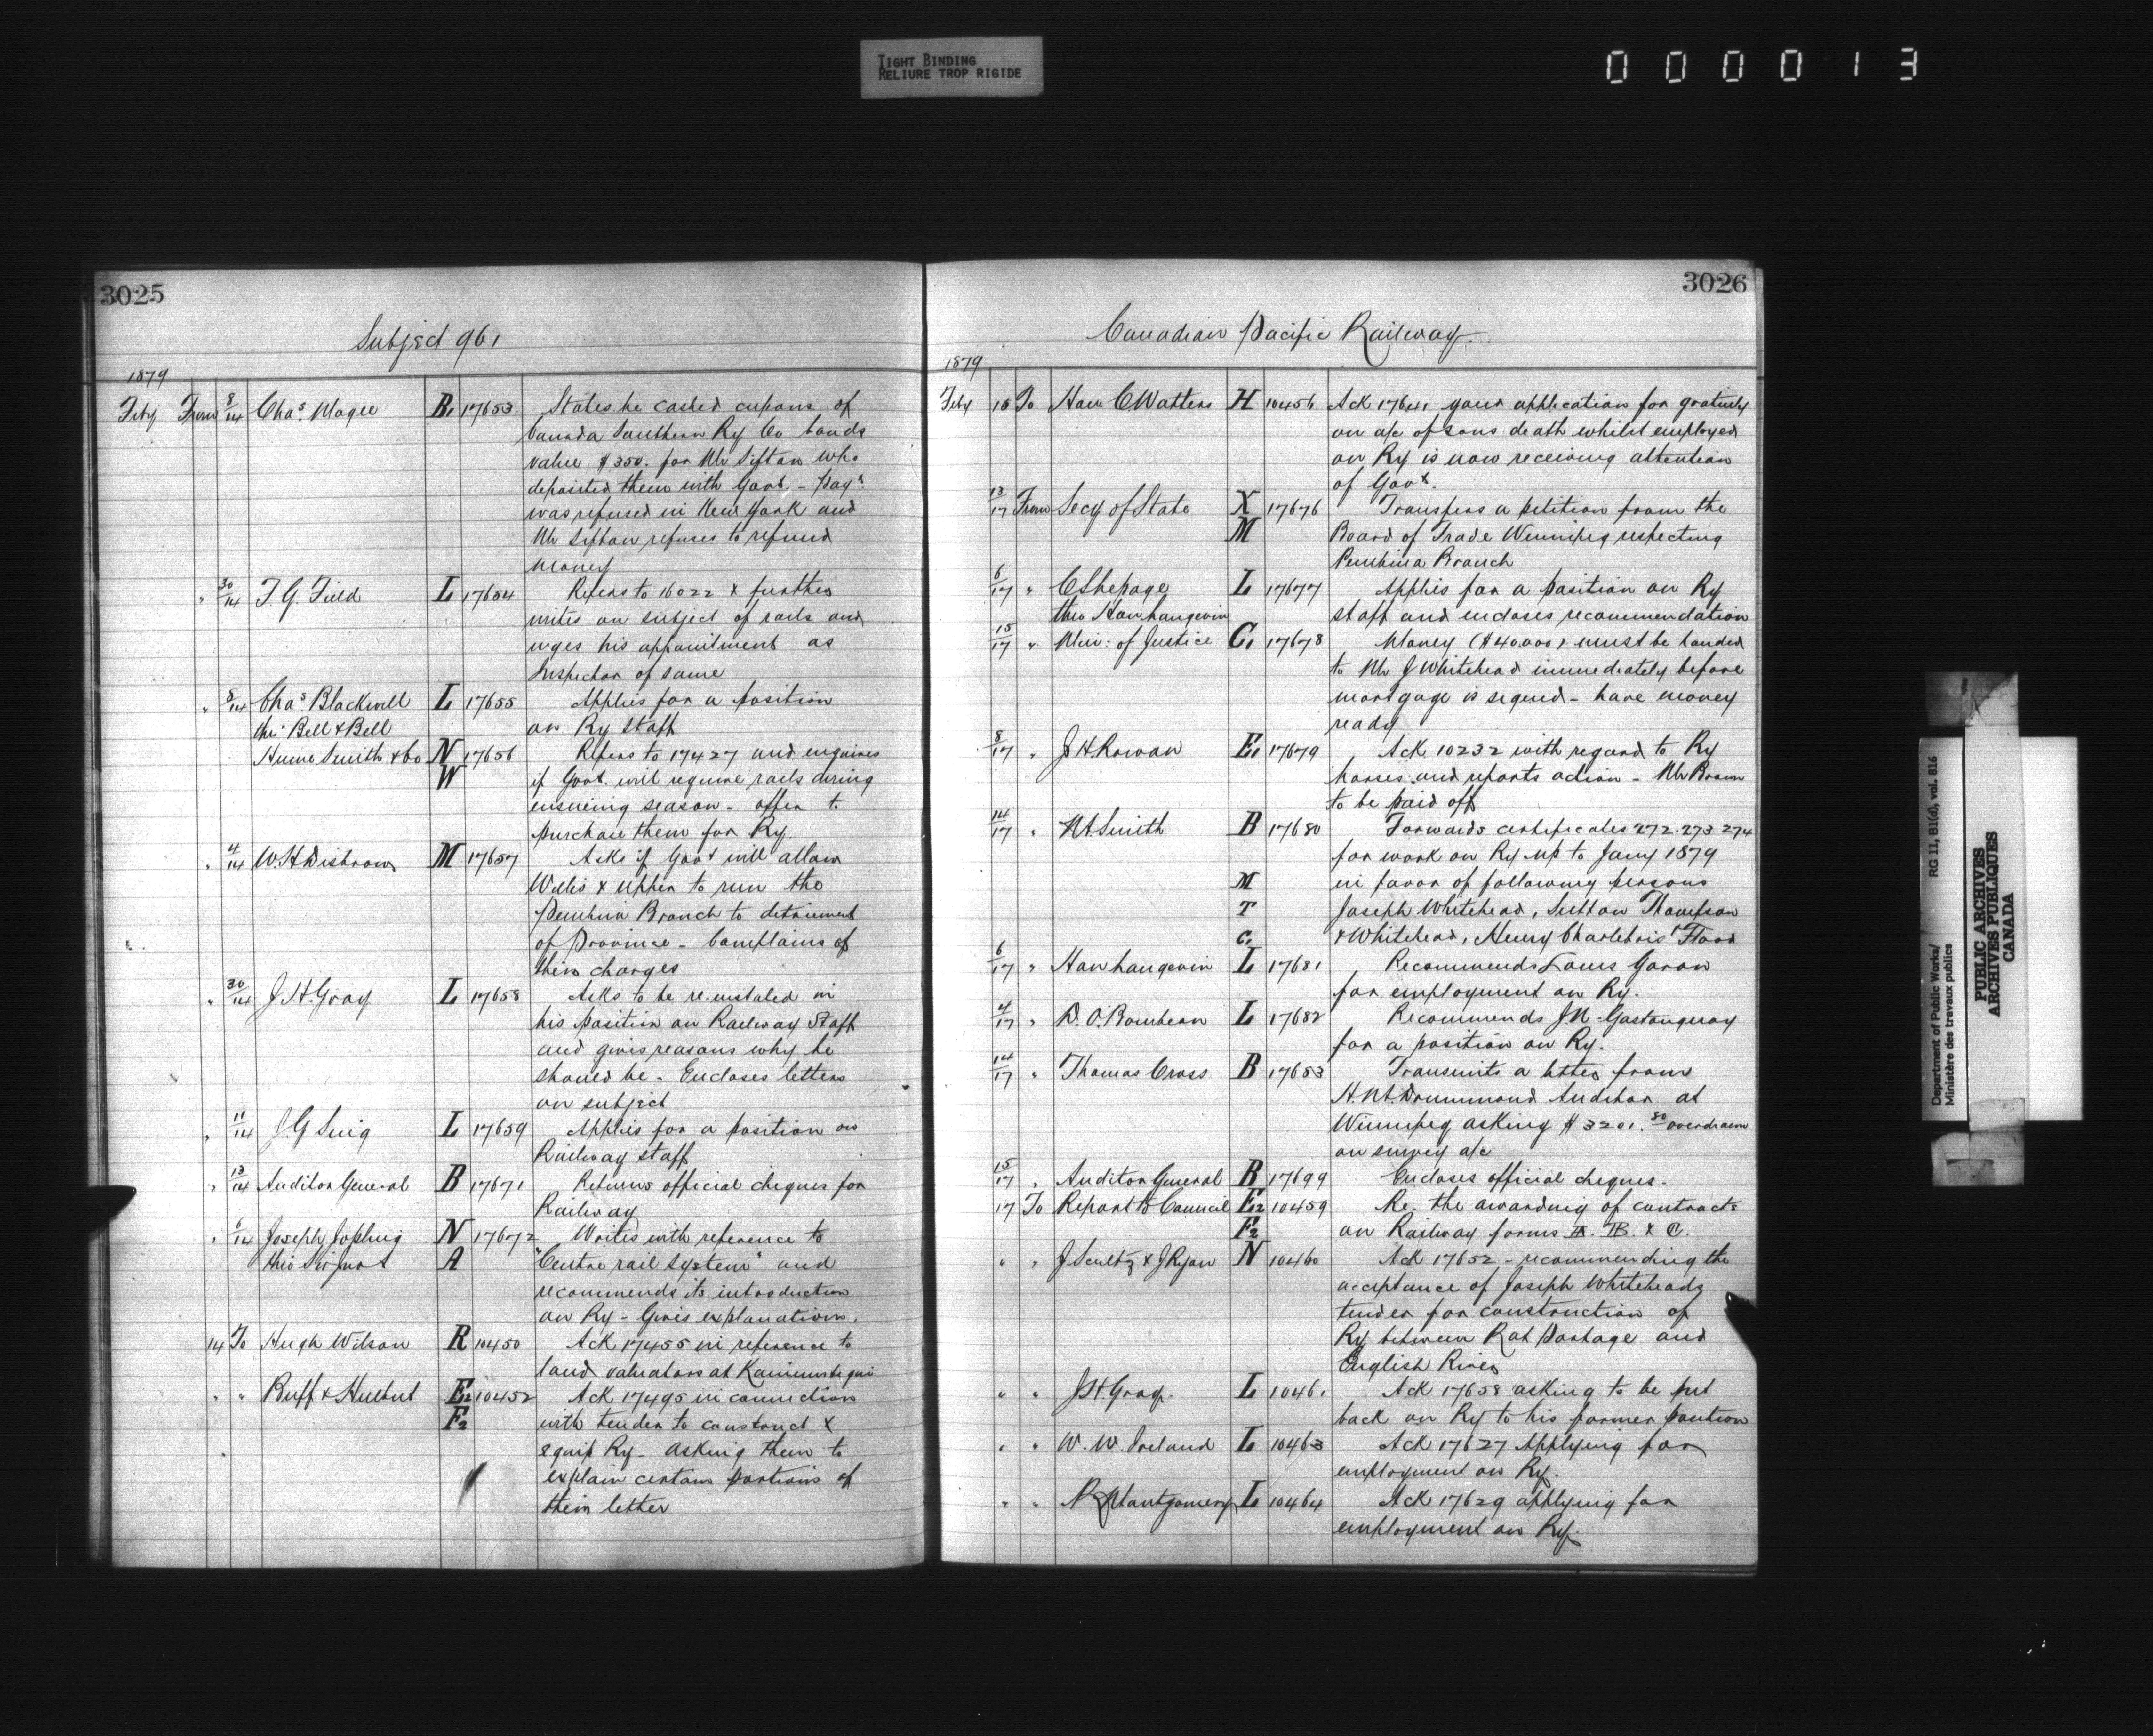 TIGHT BINDING
RELIURE TROP RIGIDE
0 0 0 0 1 3
3025
Subject 961
1879
Feby From 8/14 Chas. Magee B1 17653 States he cashed cupons of
Canada Southern Ry Co bonds
value $350. for Mr Sifton who
deposited them with Govt. - Payt.
was refused in New York and
Mr Sifton refuses to refund
money
" 30/14 F. G. Field L 17654 Refers to 16022 & further
writes on subject of rails and
urges his appointment as
Inspector of same
" 8/14 Chas Blackwell L 17655 Applies for a position
thro' Bell & Bell on Ry Staff
Hume Smith & Co N 17656 Refers to 17427 and enquires
W if Govt. will require rails during
ensueing season - offer to
purchase them for Ry.
" 4/14 W. H Disbrow M 17657 Asks if Govt will allow
Willis & Upper to run the
Pembina Branch to detriment
of Province - Complains of
their charges
" 30/14 J. H. Gray L 17658 Asks to be re-instaled in
his position on Railway Staff
and gives reasons why he
should be - Encloses letters
on subject
" 11/14 J. G L 17659 Applies for a position on
Railway staff
" 13/14 Auditor General B 17671 Returns official cheques for
Railway
" 6/14 Joseph Jopling N 17672 Writes with reference to
thro A "Centre rail System" and
recommends its introduction
on Ry - Gives explanations.
14 To Hugh Wilson R 10450 Ack 17455 in reference to
land valuators at
" " Ruff & Hulbut E2 10452 Ack 17495 in connection
F2 with tender to construct &
equip Ry - asking them to
explain certain portions of
their letter
3026
Canadian Pacific Railway
1879
Feby 15 To Hon C Watters H 10456 Ack 17641 your application for gratuity
on a/c of sons death whilst employed
on Ry is now receiving attention
of Govt.
13/17 From Secy of State X 17676 Transfers a petition from the
M Board of Trade Winnipeg respecting
Pembina Branch
6/17 " C Lepage L 17677 Applies for a position on Ry
thro Hon Langevin staff and encloses recommendation
15/17 " Min: of Justice C1 17678 Money ($40,000) must be handed
to Mr J Whitehead immediately before
mortgage is signed - have money
ready
8/17 " J H Rowan E1 17679 Ack 10232 with regard to Ry
horses and reports action - Mr Brown
to be paid off
14/17 " Smith B 17680 Forwards certificates 272.273 274
for work on Ry up to Jany 1879
M in favor of following persons
T Joseph Whitehead, Sutton Thompson
C1 & Whitehead, Henry Charlebois & Flood
6/17 " Hon Langevin L 17681 Recommends Louis Garon
for employment on Ry.
4/17 " D. O. Bourbeau L 17682 Recommends J. N. Gastonguay
for a position on Ry.
14/17 " Thomas Cross B 17683 Transmits a letter from
H. M. Drummond Auditor at
Winnipeg asking $3201.80 overdrawn
on survey a/c
15/17 " Auditor General B 17699 Encloses official cheques -
17 To Report to Council E2 10459 Re. the awarding of contracts
F2 on Railway forms A. B. & C.
" " J & J Ryan N 10460 Ack 17652 - recommending the
acceptance of Joseph Whiteheads
tender for construction of
Ry between Rat Portage and
English River
" " J. H. Gray L 10461 Ack 17658 asking to be put
back on Ry to his former position
" " W. W. Ireland L 10463 Ack 17627 Applying for
employment on Ry.
" " Montgomery L 10464 Ack 17629 applying for
employment on Ry.
Department of Public Works/ RG 11, B1(d), vol. 816
Ministère des travaux publics
PUBLIC ARCHIVES
ARCHIVES PUBLIQUES
CANADA